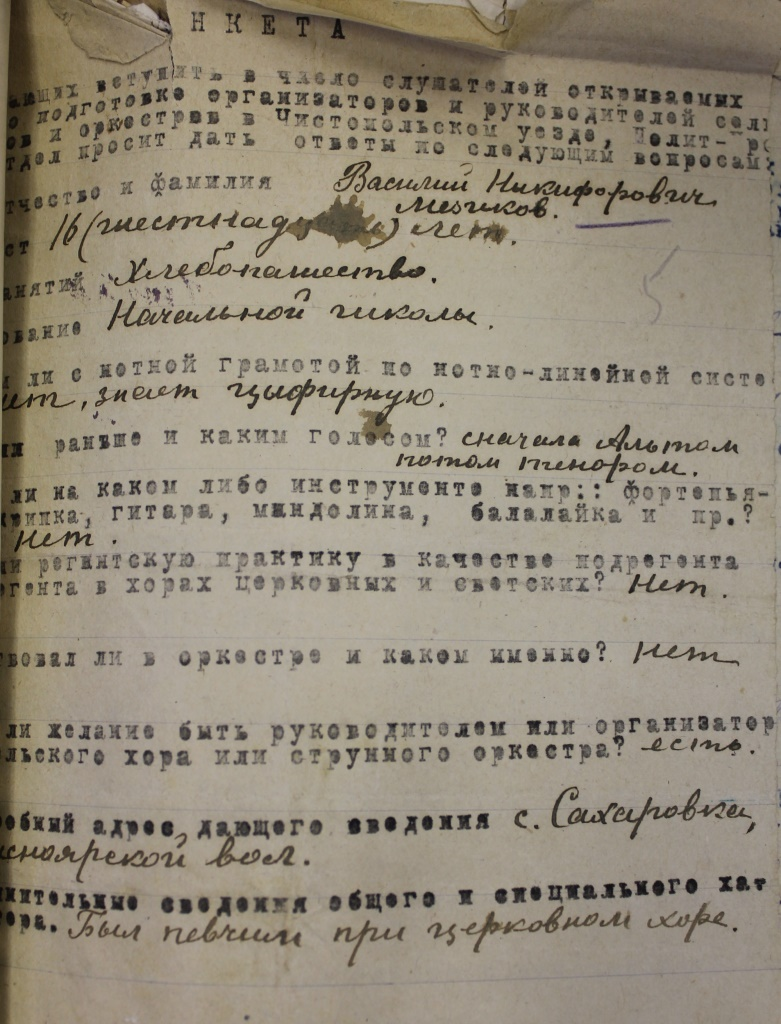 НКЕТА
ающих вступить в число слушателей открываемых
о подготовке организаторов и руководителей сель
ов и оркестров в Чистопольском уезде, Полит-ро
тдел просит дать ответы по следующим вопросам:
тчество и фамилия Василий Никифорович
Мезиков.
ст 16 (шестнадцати) лет.
анятий Хлебопашество.
ование Начальной школы.
и ли с нотной грамотой по нотно-линейной систе
ет, знает цыфирную.
ил раньше и каким голосом? сначала Альтом
потом тенором.
ли на каком либо инструменте напр:: фортепья-
крипка, гитара, мандолина, балалайка и пр.?
Нет.
ли регентскую практику в качестве подрегента
егента в хорах церковных и светских? Нет.
твовал ли в оркестре и каком именно? Нет
ли желание быть руководителем или организатор
льского хора или струнного оркестра? есть.
робный адрес дающего сведения с. Сахаровка,
асноярской вол.
лнительные сведения общего и специального хат
тера. Был певчим при церковном хоре.
5